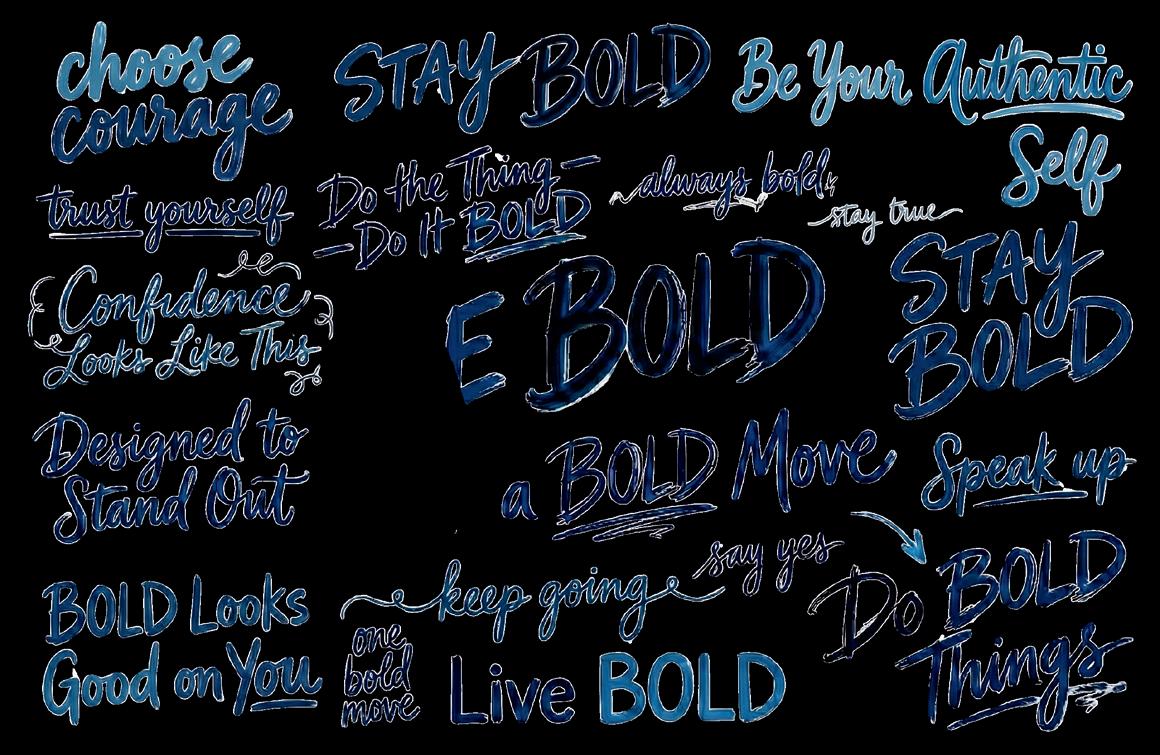 choose
courage
STAY BOLD
Be Your Authentic
Self
trust yourself
Do the Thing—
—Do It BOLD
always bold
stay true
Confidence
Looks Like This
E BOLD
STAY
BOLD
Designed to
Stand Out
a BOLD Move
Speak up
say yes
keep going
Do BOLD
Things
BOLD Looks
Good on You
one
bold
move
Live BOLD